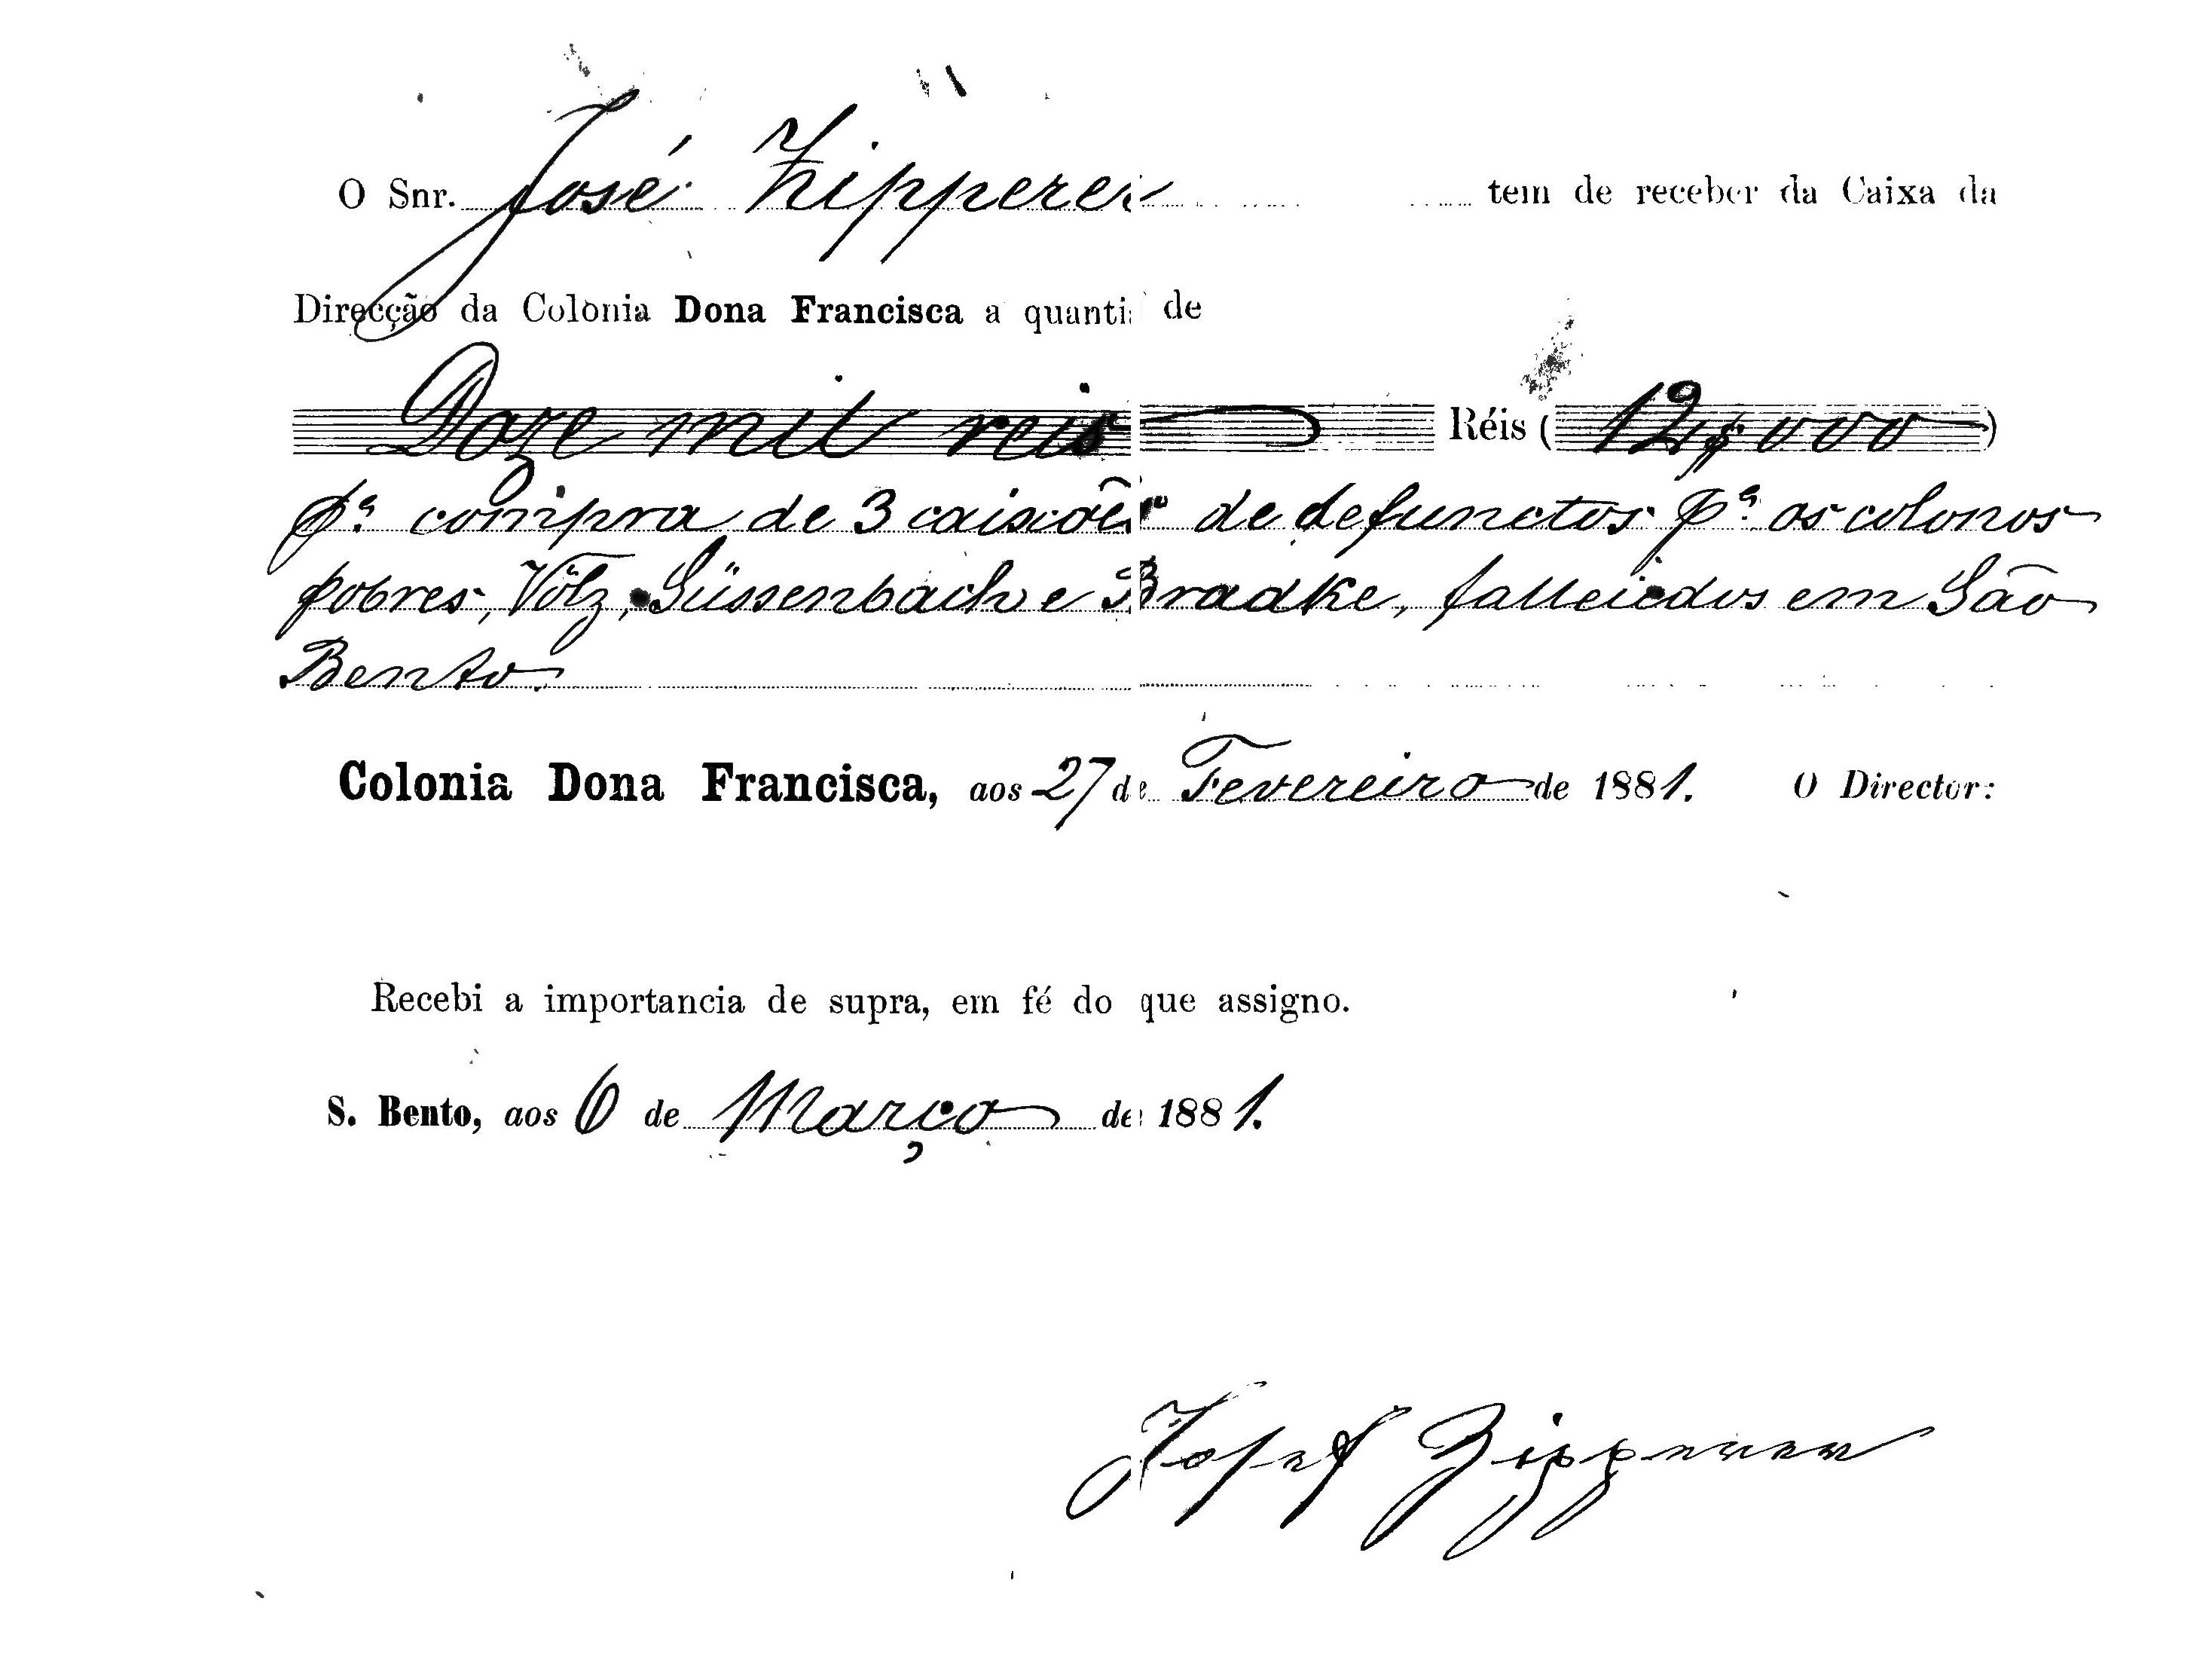 O Snr. José Zipperer tem de receber da Caixa da
Direcção da Colonia Dona Francisca a quantia de
Doze mil reis Réis (12$000)
pª compra de 3 caixões de defunctos pª os colonos
pobres, Völz, Süssenbach e Bradke, falleicedos em São
Bento.
Colonia Dona Francisca, aos 27 de Fevereiro de 1881. O Director:
Recebi a importancia de supra, em fé do que assigno.
S. Bento, aos 6 de Março de 1881.
Josef Zipperer